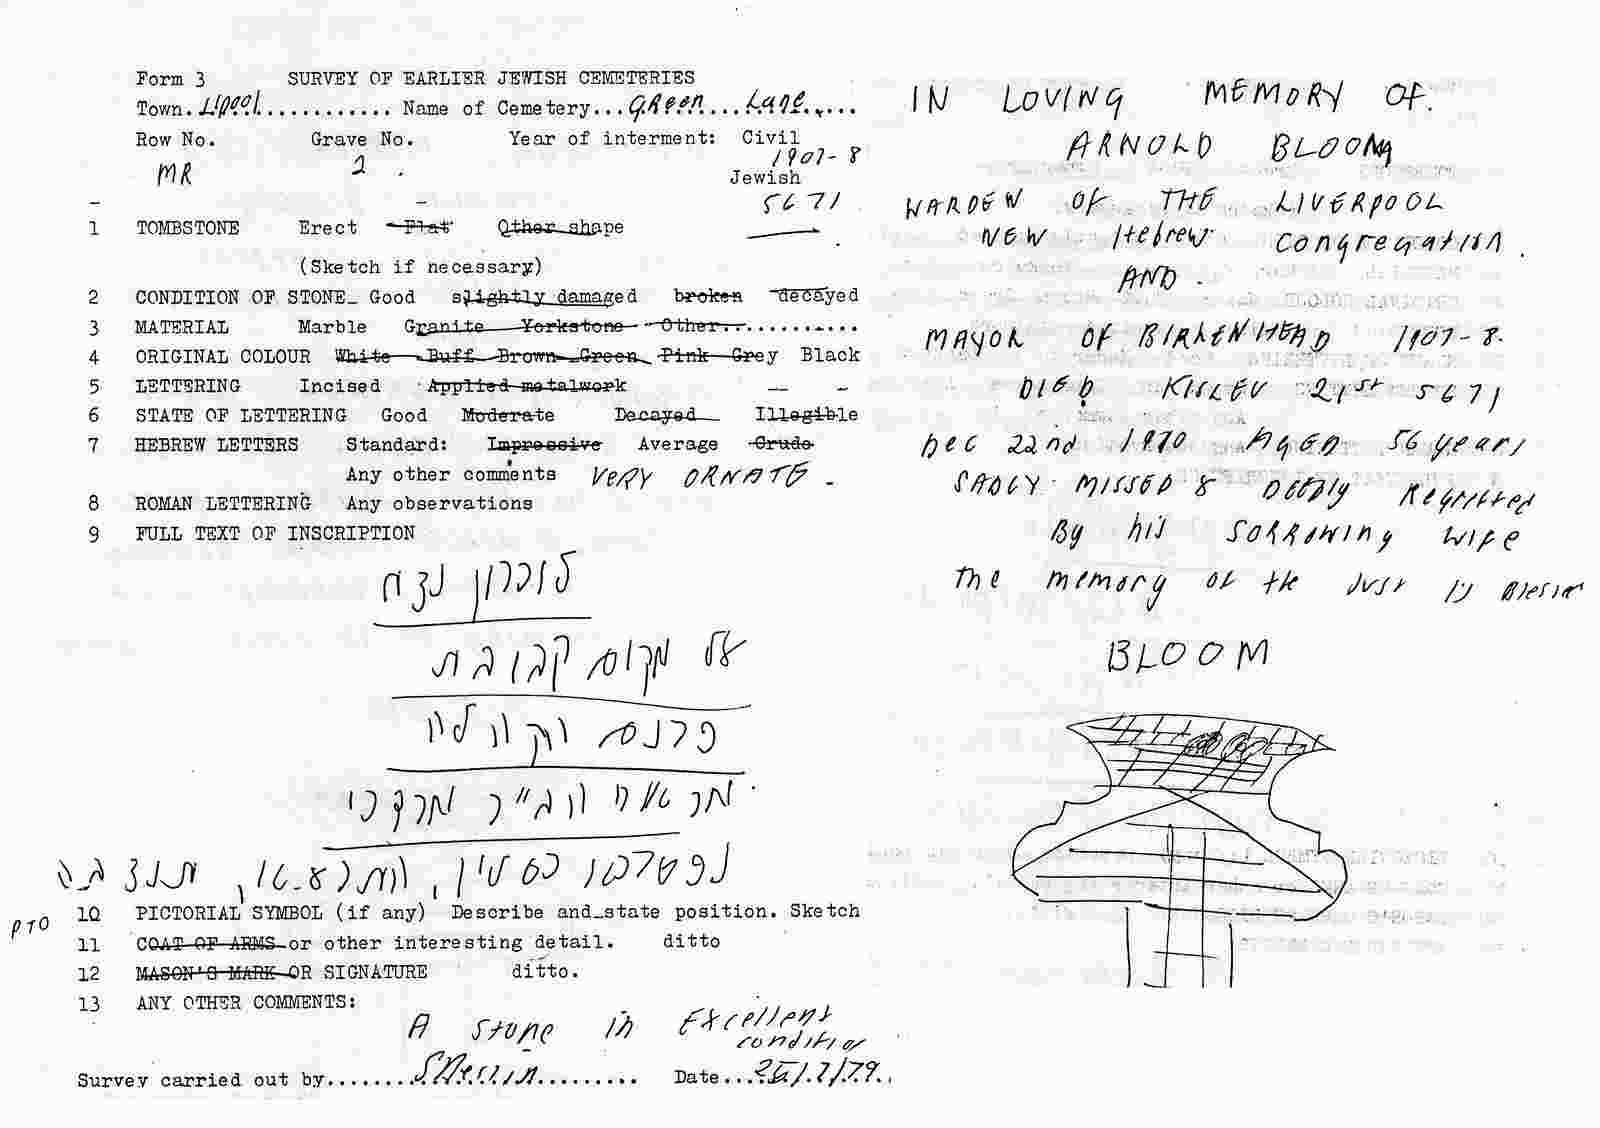 Form 3 SURVEY OF EARLIER JEWISH CEMETERIES
Town..L'pool............ Name of Cemetery...GReen....Lane......
Row No. Grave No. Year of interment: Civil
MR 2 . 1907-8
Jewish
5671
1 TOMBSTONE Erect Flat Other shape
(Sketch if necessary)
2 CONDITION OF STONE Good slightly damaged broken decayed
3 MATERIAL Marble Granite Yorkstone Other............
4 ORIGINAL COLOUR White Buff Brown Green Pink Grey Black
5 LETTERING Incised Applied metalwork
6 STATE OF LETTERING Good Moderate Decayed Illegible
7 HEBREW LETTERS Standard: Impressive Average Crude
Any other comments VERY ORNATE -
8 ROMAN LETTERING Any observations
9 FULL TEXT OF INSCRIPTION
לזכרון נצח
על מקום קבורת
פרנס
מרדכי
תנצבה
PTO
10 PICTORIAL SYMBOL (if any) Describe and state position. Sketch
11 COAT OF ARMS or other interesting detail. ditto
12 MASON'S MARK OR SIGNATURE ditto.
13 ANY OTHER COMMENTS:
A stone in Excellent
condition
Survey carried out by Date /7/79
IN LOVING MEMORY OF.
ARNOLD BLOOM
WARDEN OF THE LIVERPOOL
NEW Hebrew CONGREGATION.
AND.
MAYOR OF BIRKENHEAD 1907-8.
DIED KISLEV 21st 5671
DEC 22nd 1910 AGED 56 years
SADLY MISSED & DEEPLY Regretted
By his SORROWING WIFE
The memory of the Just is
BLOOM